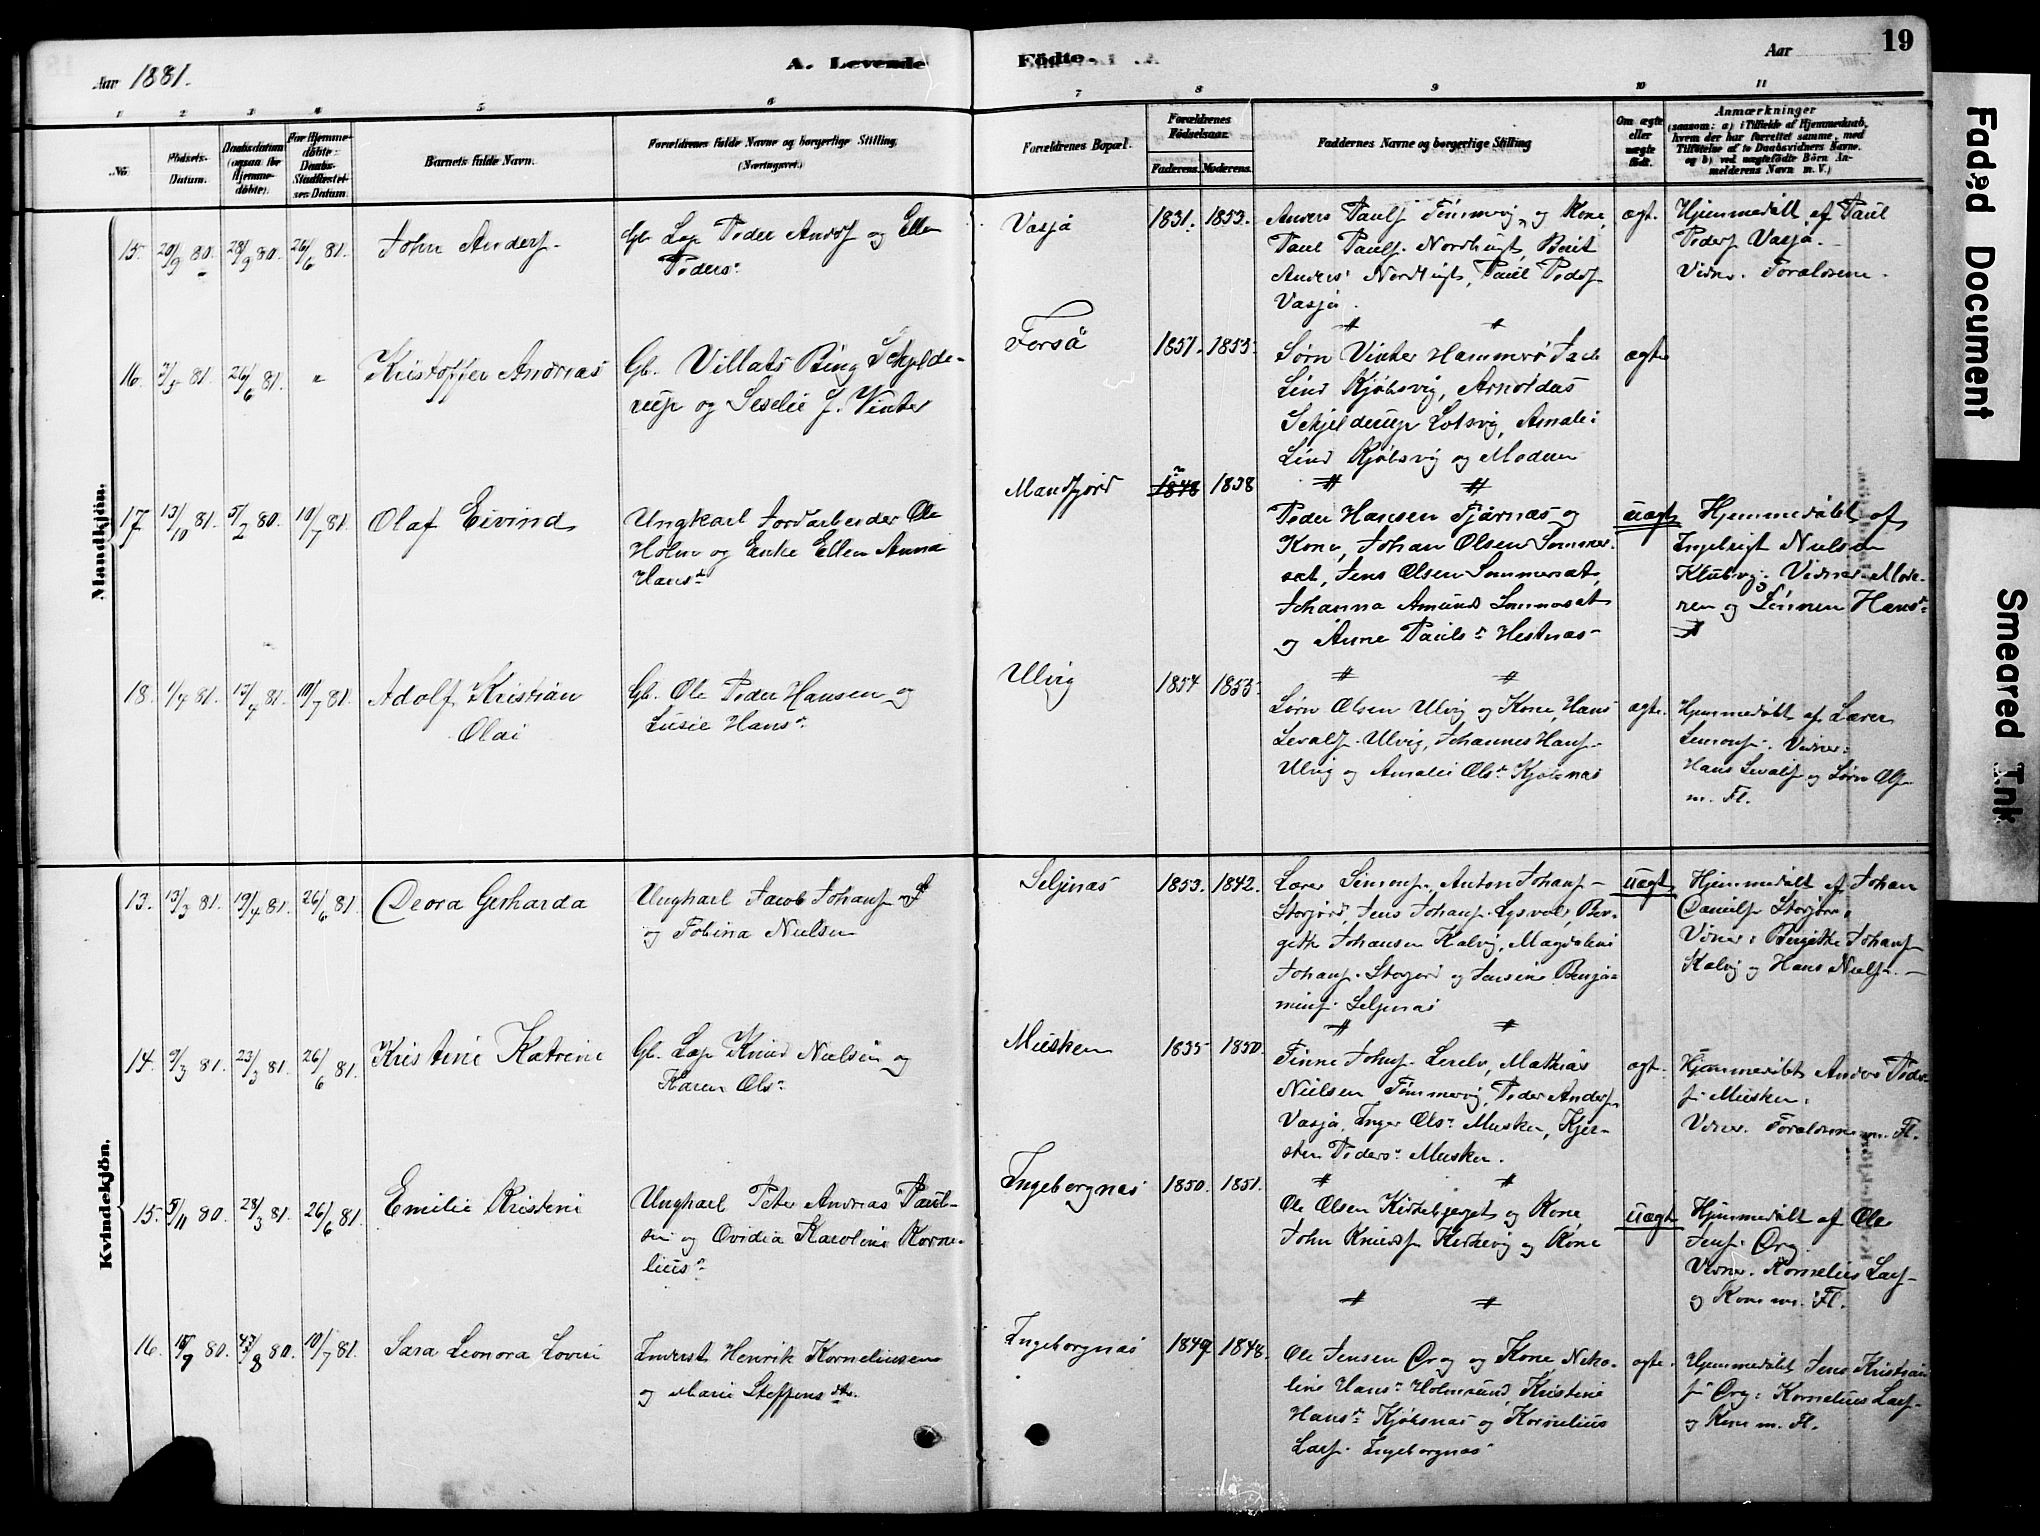 Aar 1881.
A. Levende
Födte.
Aar
19
1 2 3 4 5 6
7 8 9 10 11
No.
Födsels-
Datum.
Daabsdatum
(ogsaa for
Hjemme-
döbte).
For Hjemme-
döbte:
Daabs-
Stadfæstel-
ses Datum.
Barnets fulde Navn.
Forældrenes fulde Navne og borgerlige Stilling.
(Næringsvei.)
Forældrenes Bopæl.
Forældrenes
Födselsaar.
Faderens. Moderens.
Faddernes Navne og borgerlige Stilling
Om ægte
eller
uægte
födt.
Anmærkninger
(saasom: a) i Tilfælde af Hjemmedaab,
hvem der har forrettet samme, med
Tilföielse af to Daabsvidners Navne,
og b) ved uægtefödte Börn An-
melderens Navn m. V.)
Mandkjön.
15. 20/9 80. 28/9 80. 26/6 81.
John Andersf.
Gb. Lap Peder Andsf og Ellen
Peders.
Vasja
1831. 1853.
Anders Paulsf Tømmervig og Kone,
Paul Paulsf. Nordbugt, Berit
Anders Nordbugt, Paul Pedsf
Vasja.
ægt.
Hjemmedøbt af Paul
Pedersf Vasja.
Vidner. Forældrene.
16. 7/5 81. 26/6 81. "
Kristoffer Andreas
Gb. Villats Bing Schjelde-
rup og Leselie J. Vinter
Forså
1851. 1855.
Sørn Vinter Hammerø
Lind Kjøbsvig, Arnoldus
Schjelderup Lotsvig, Amalie
Lind Kjøbsvig og Moderen
ægte
17. 13/10 81. 5/2 80. 10/7 81.
Olaf Eivind
Ungkarl Jordarbeider Ole
Holm og Enke Ellen Anna
Hans.
Mansfjord
1848 1838
Peder Hansen Tjårnæs og
Kone, Johan Olsen Sommer-
sæt, Jens Olsen Sommersæt,
Johanna Amunds Sommersæt
og Anne Pauls. Hestnæs
uægt.
Hjemmedøbt af
Ingebrigt Nielsen
Klubvig. Vidner. Mode-
ren og Hans.
18. 1/4 81. 13/4 81. 10/7 81.
Adolf Kristian
Olai
Gb. Ole Peder Hansen og
Lusie Hans.
Ulvig
1854 1855.
Sørn Olsen Ulvig og Kone, Hans
Levalsf. Ulvig, Johannes Hansf.
Ulvig og Amalie Ols. Kjøbsnæs
ægte.
Hjemmedøbt af Lærer
Simonsf. Vidner:
Hans Levalsf og Sørn Olsf
m. Fl.
Kvindekjön.
13. 13/3 81. 19/4 81. 26/6 81.
Deora Gerharda
Ungkarl Jacob Johansf
og Tobina Nielsen
Seljenæs
1853. 1842.
Lærer Simonsf., Anton Johansf.
Storjord, Jens Johansf. Lysvold, Ber-
gitte Johansen Kalvig, Magdalene
Johansf. Storjord og Jensine Benja-
minsf. Seljenæs
uægt.
Hjemmedøbt af Johan
Danielsf Storjord.
Vidner: Bergitte Johansf
Kalvig og Hans Nielsf.
14. 9/3 81. 23/3 81. 26/6 81.
Kristine Katrine
Gb. Lap Knud Nielsen og
Karen Ols.
Musken
1835 1850.
Finne Johnsf. Mathias
Nielsen Tømmervig, Peder Andersf.
Vasja, Inger Ols. Musken, Kjer-
sten Peders. Musken.
ægt.
Hjemmedøbt Anders Peder-
sf. Musken.
Vidner. Forældrene m. Fl.
15. 5/11 80. 28/3 81. 26/6 81.
Emilie Kristine
Ungkarl Peter Andreas Paul-
sen og Ovidia Karoline Korne-
lius.
Ingeborgnæs
1850. 1851.
Ole Olsen Kirkebjerget og Kone,
John Knudsf Kirkevig og Kone
uægt.
Hjemmedøbt af Ole
Jensf.Ørg.
Vidner. Kornelius Larsf.
og Kone m. Fl.
16. 18/7 80. 80. 10/7 81.
Sara Leonora Lovise
Inderst Henrik Korneliussen
og Marie Steffensdtr.
Ingeborgnæs
1849 1848.
Ole Jensen Ørg og Kone, Niko-
line Hans. Holmsund, Kristine
Hans. Kjøbsnæs og Kornelius
Larsf. Ingeborgnæs
ægte.
Hjemmedøbt Jens Kristian
Ørg: Kornelius Larsf.
og Kone m. Fl.
Faded Document
Smeared Ink